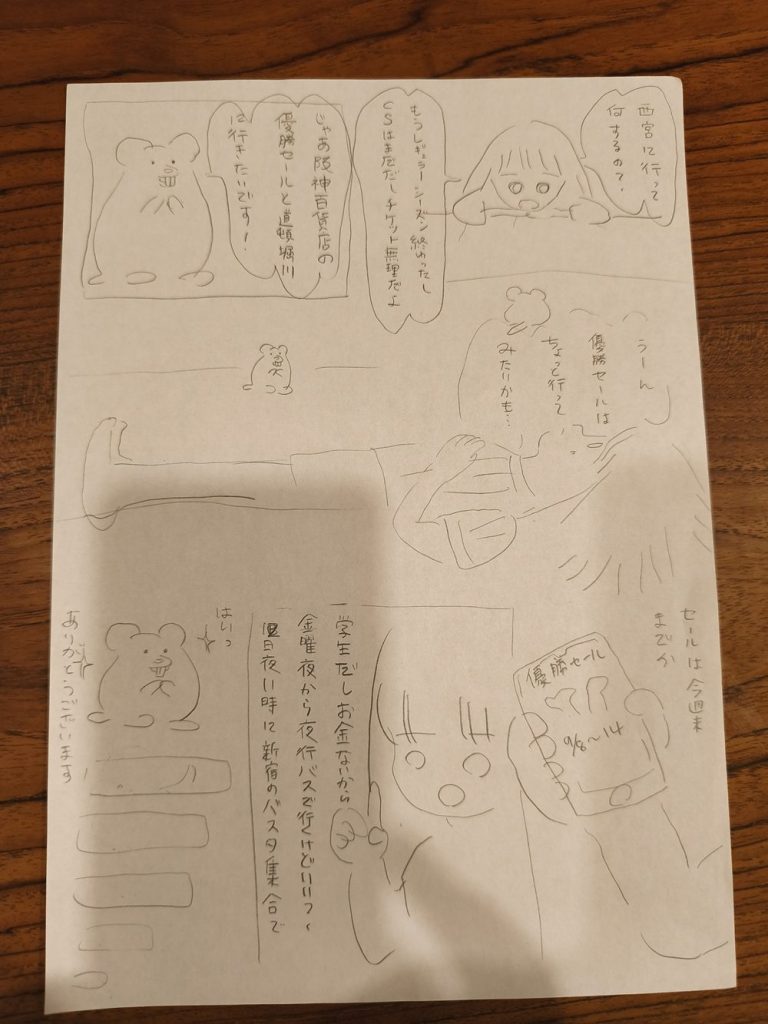 西宮に行って
何するの?
もうレギュラーシーズン終わったし
CSはまだだしチケット無理だよ
じゃあ阪神百貨店の
優勝セールと道頓堀川
に行きたいです!
うーん
優勝セールは
ちょっと行って
みたいかも…
セールは今週末
までか
優勝セール
9/8〜14
学生だしお金ないから
金曜夜から夜行バスで行くけどいい?
夜に新宿のバスタ集合で
はいっ
ありがとうございます